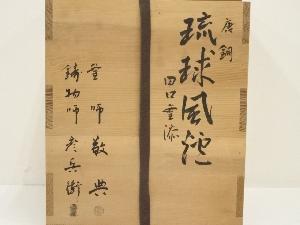 唐銅
琉球風炉
田口宣漆
釜師 敬典
鋳物師 彦兵衛